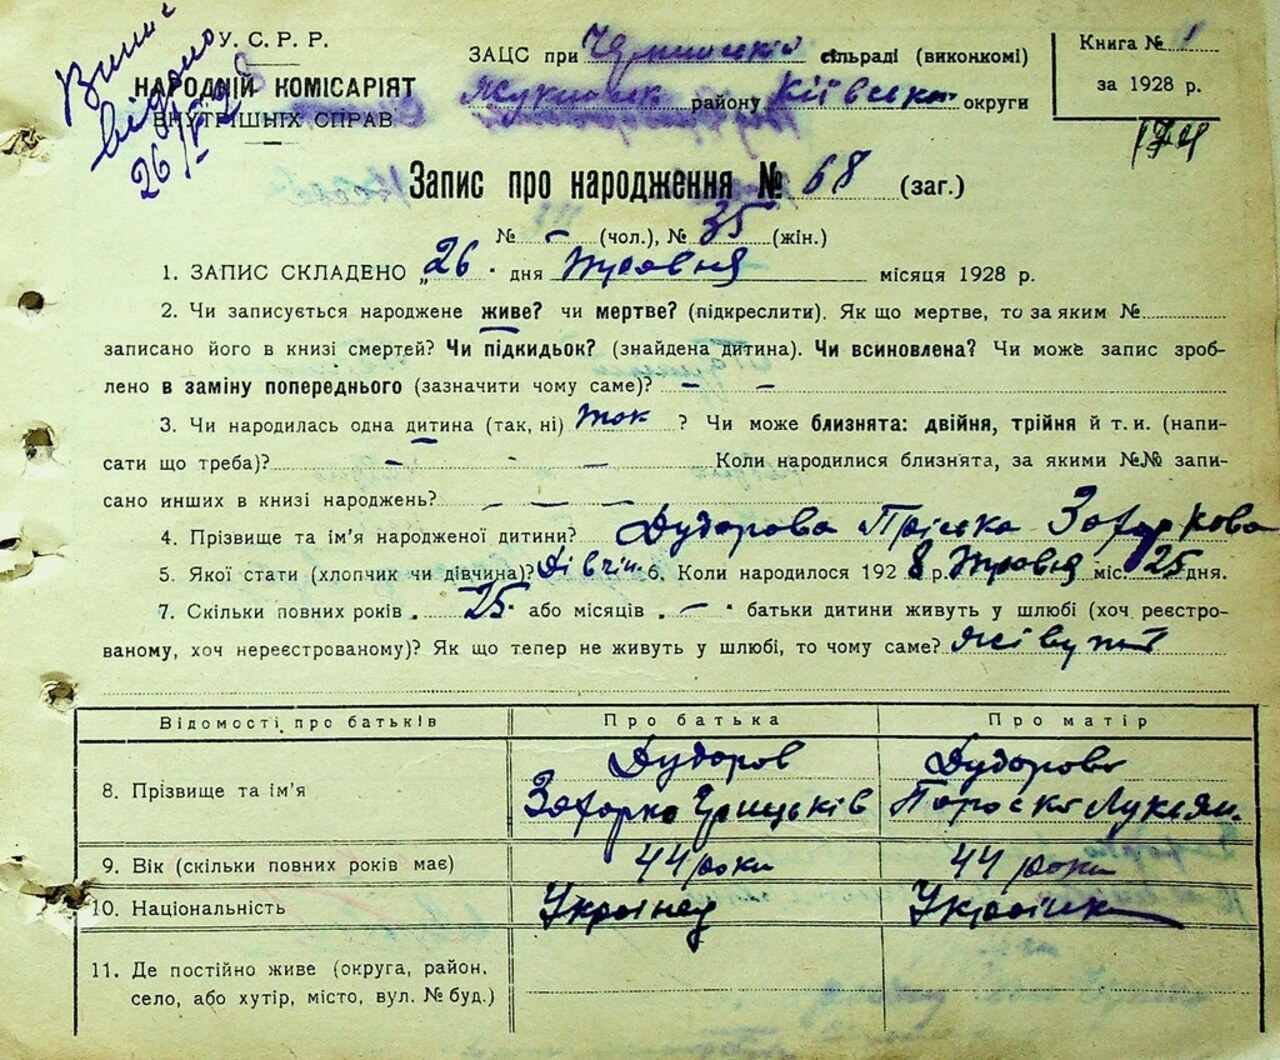 Випис
видано
26/V-28
У. С. Р. Р.
НАРОДНІЙ КОМІСАРІЯТ
ВНУТРІШНІХ СПРАВ
ЗАЦС при сільраді (виконкомі)
району Київської округи
Книга № 1
за 1928 р.
174
Запис про народження № 68 (заг.)
№ - (чол.), № 35 (жін.)
1. ЗАПИС СКЛАДЕНО „26" дня Травня місяця 1928 р.
2. Чи записується народжене живе? чи мертве? (підкреслити). Як що мертве, то за яким №
записано його в книзі смертей? Чи підкидьок? (знайдена дитина). Чи всиновлена? Чи може запис зроб-
лено в заміну попереднього (зазначити чому саме)? - -
3. Чи народилась одна дитина (так, ні) так ? Чи може близнята: двійня, трійня й т. и. (напи-
сати що треба)? - - - Коли народилися близнята, за якими №№ запи-
сано инших в книзі народжень? - - -
4. Прізвище та ім'я народженої дитини? Дударова Пріська Захаркова
5. Якої стати (хлопчик чи дівчина)? Дівчин. 6. Коли народилося 1928 р. Травня міс. 25 дня.
7. Скільки повних років „25" або місяців „-" батьки дитини живуть у шлюбі (хоч реєстро-
ваному, хоч нереєстрованому)? Як що тепер не живуть у шлюбі, то чому саме? Живуть
Відомості про батьків Про батька Про матір
8. Прізвище та ім'я Дударов Дударова
Захарко Грицьків Параска Лукіян.
9. Вік (скільки повних років має) 44 роки 44 роки
10. Національність Українец Українка
11. Де постійно живе (округа, район,
село, або хутір, місто, вул. № буд.)